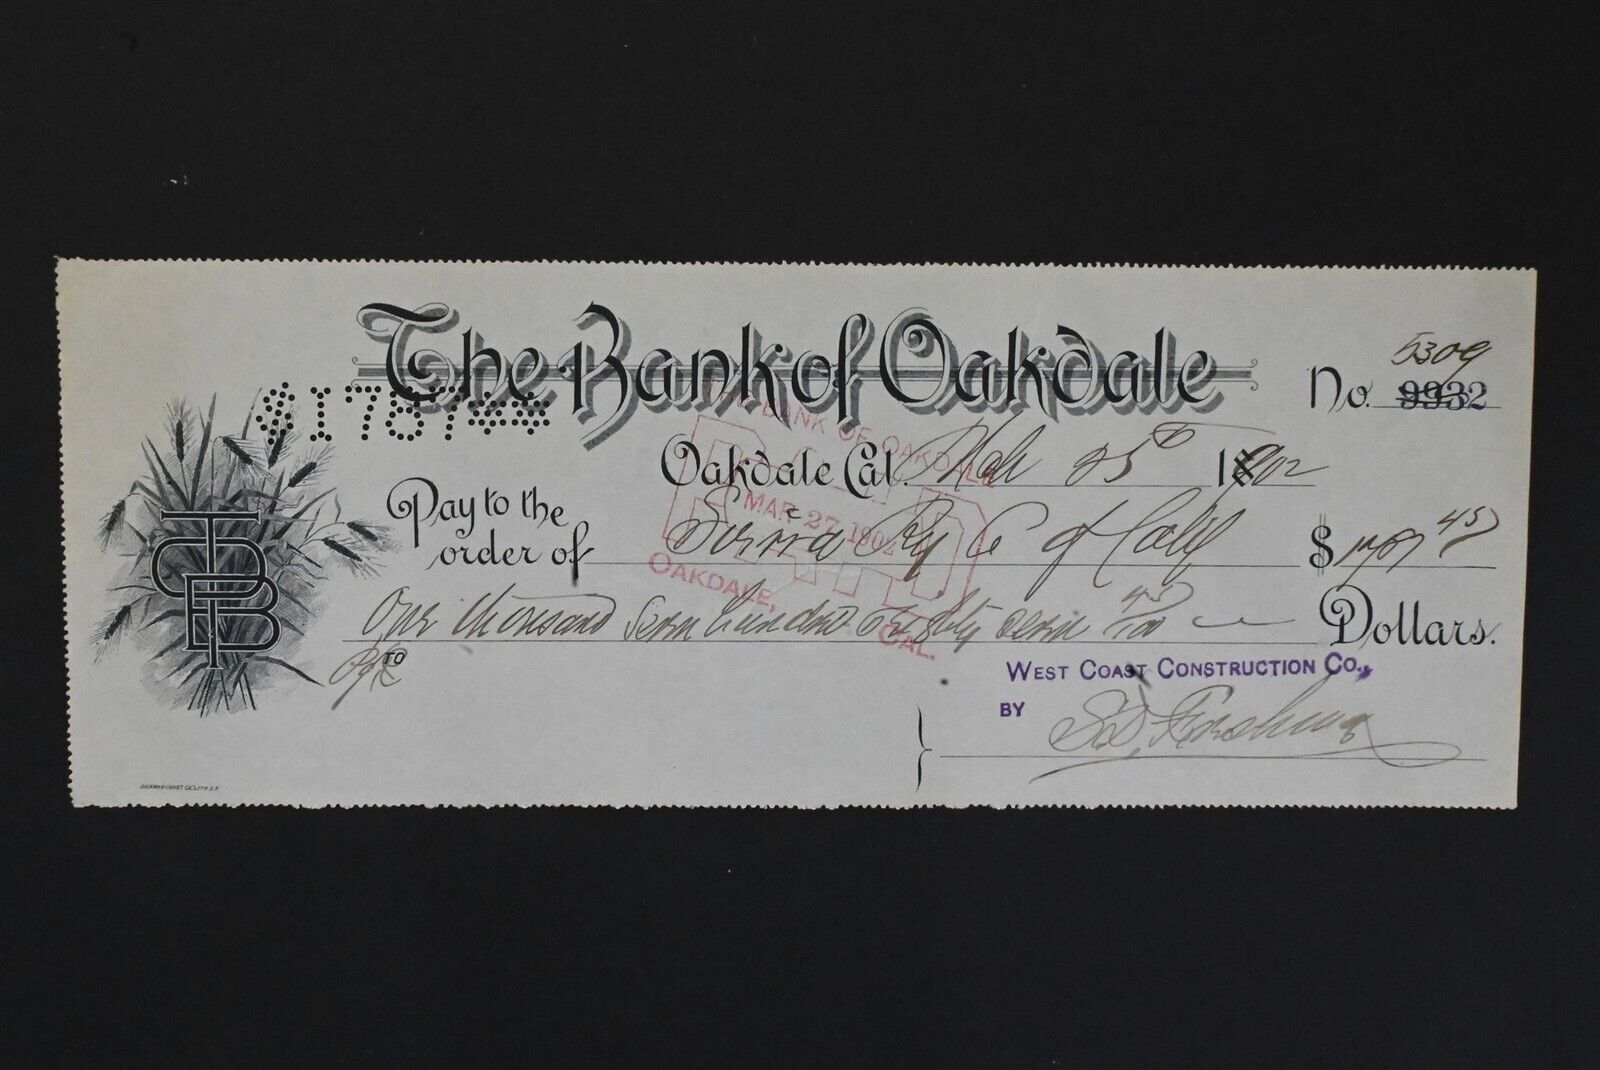 The Bank of Oakdale
5309
No. 9932
$1787**
Oakdale Cal. Mch 25th 1902
Pay to the order of Sierra Ry Co of Calif $1787 45
One thousand seven hundred Eighty seven 45/100 Dollars.
TO
WEST COAST CONSTRUCTION CO.,
BY
THE BANK OF OAKDALE
PAID
MAR 27 1902
OAKDALE, CAL.
TBOB